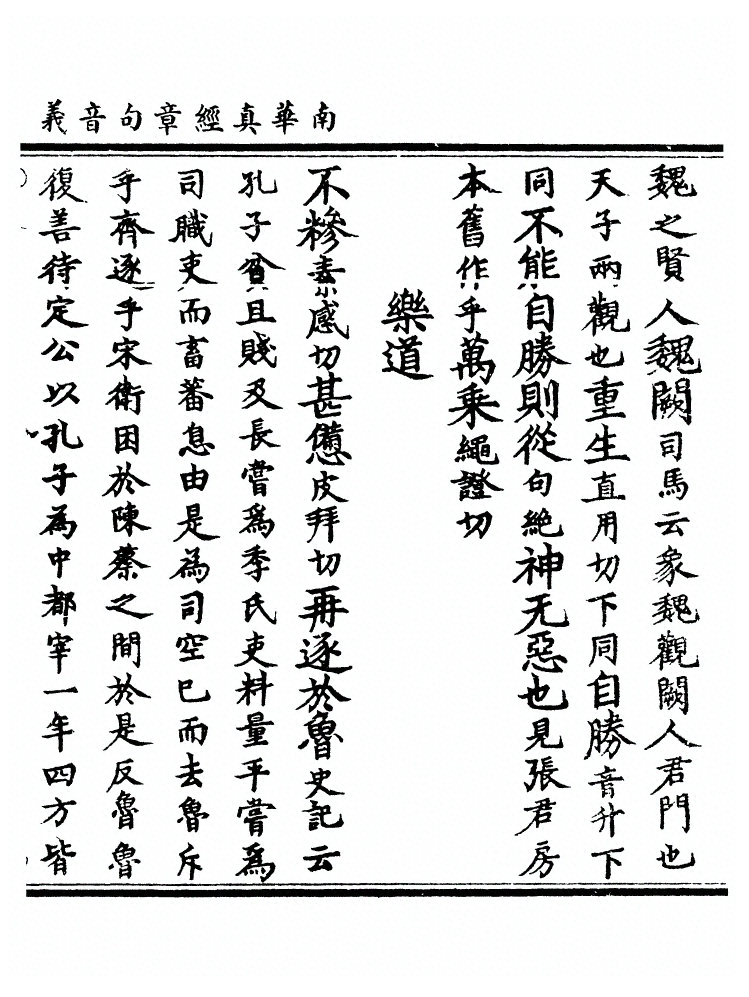 南華真經章句音義
魏之賢人魏闕司馬云象魏觀闕人君門也
天子兩觀也重生直用切下同自勝音升下
同不能自勝則從句絶神无惡也見張君房
本舊作乎萬乘繩證切
樂道
不糝素感切甚憊皮拜切再逐於魯史記云
孔子貧且賤及長嘗爲季氏吏料量平嘗爲
司職吏而畜蕃息由是為司空已而去魯斥
乎齊逐乎宋衛困於陳蔡之間於是反魯魯
復善待定公以孔子為中都宰一年四方皆